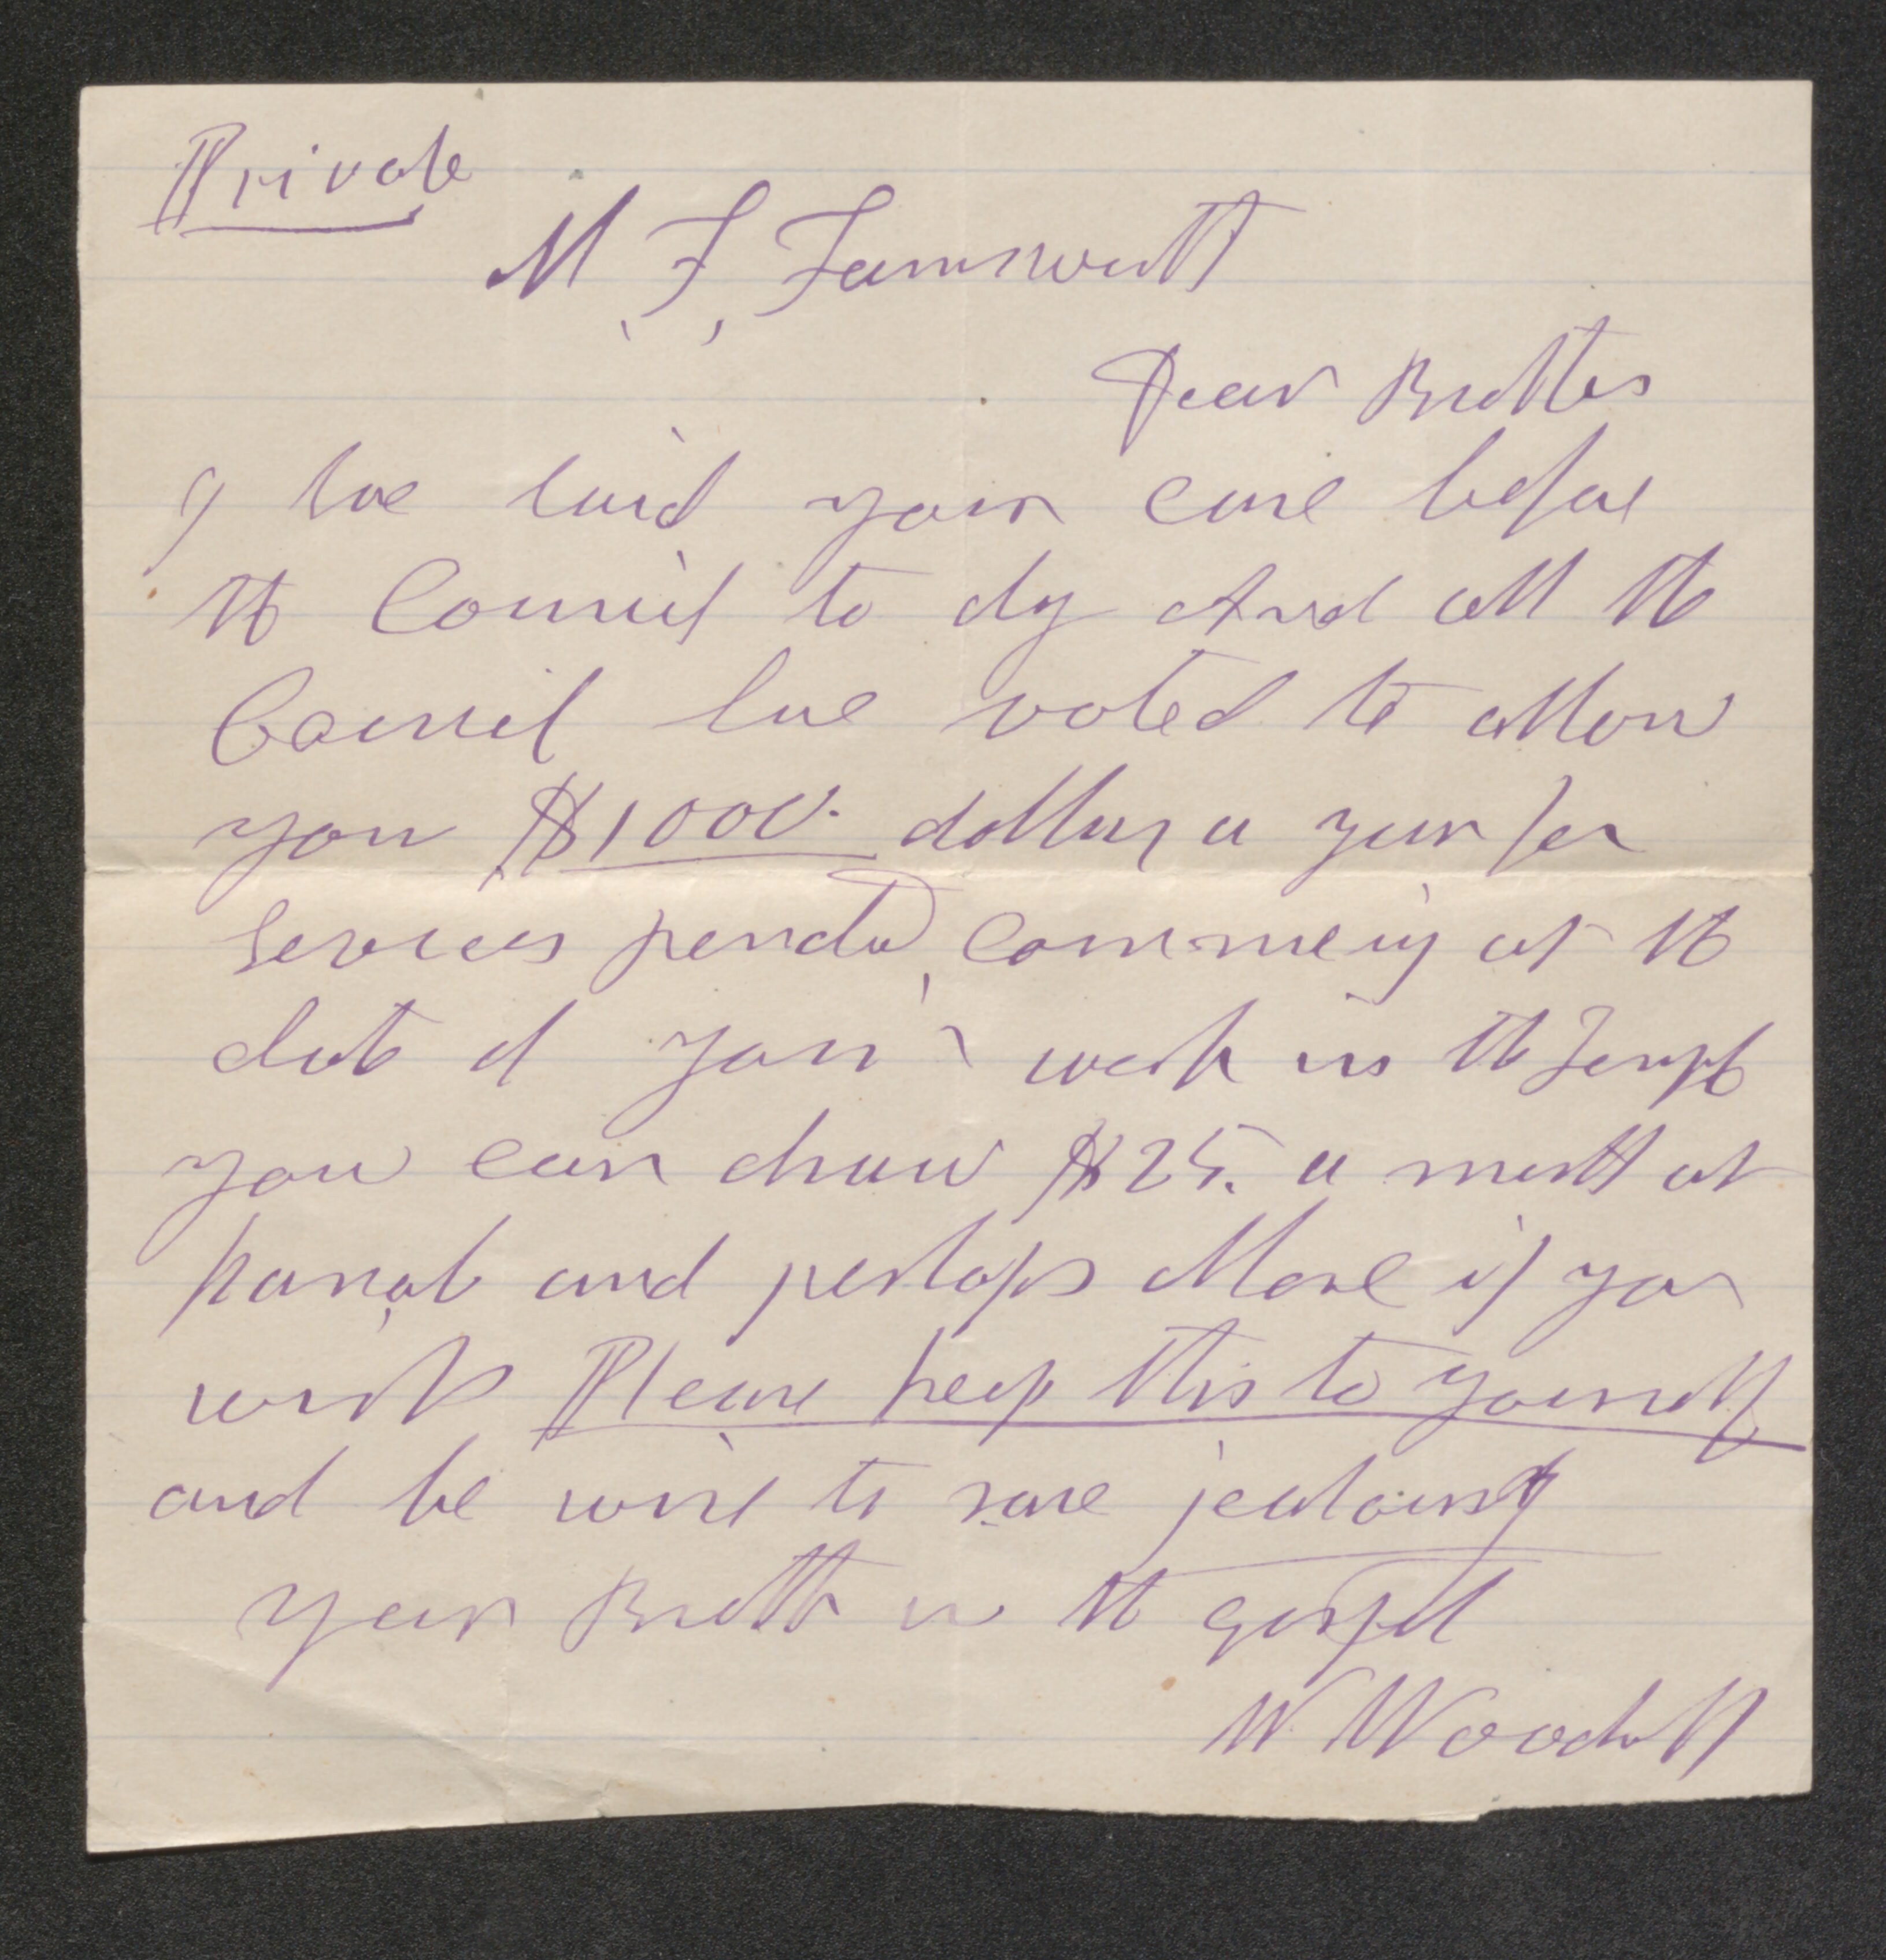 Private
M. F. Farnsworth
Dear Brother
I have laid your case before
the Council to day And all the
Council have voted to allow
you $1000. dollars a year for
Services rendered, commencing at the
date of your work in the Temple
you can draw $25. a month at
Manti and perhaps More if you
wish Please keep this to yourself
and be wise to save jealousy
your Brother in the gospel
W Woodruff